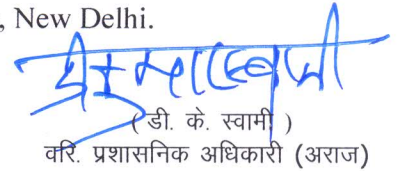 , New Delhi.
( डी. के. स्वामी )
वरि. प्रशासनिक अधिकारी (अराज)